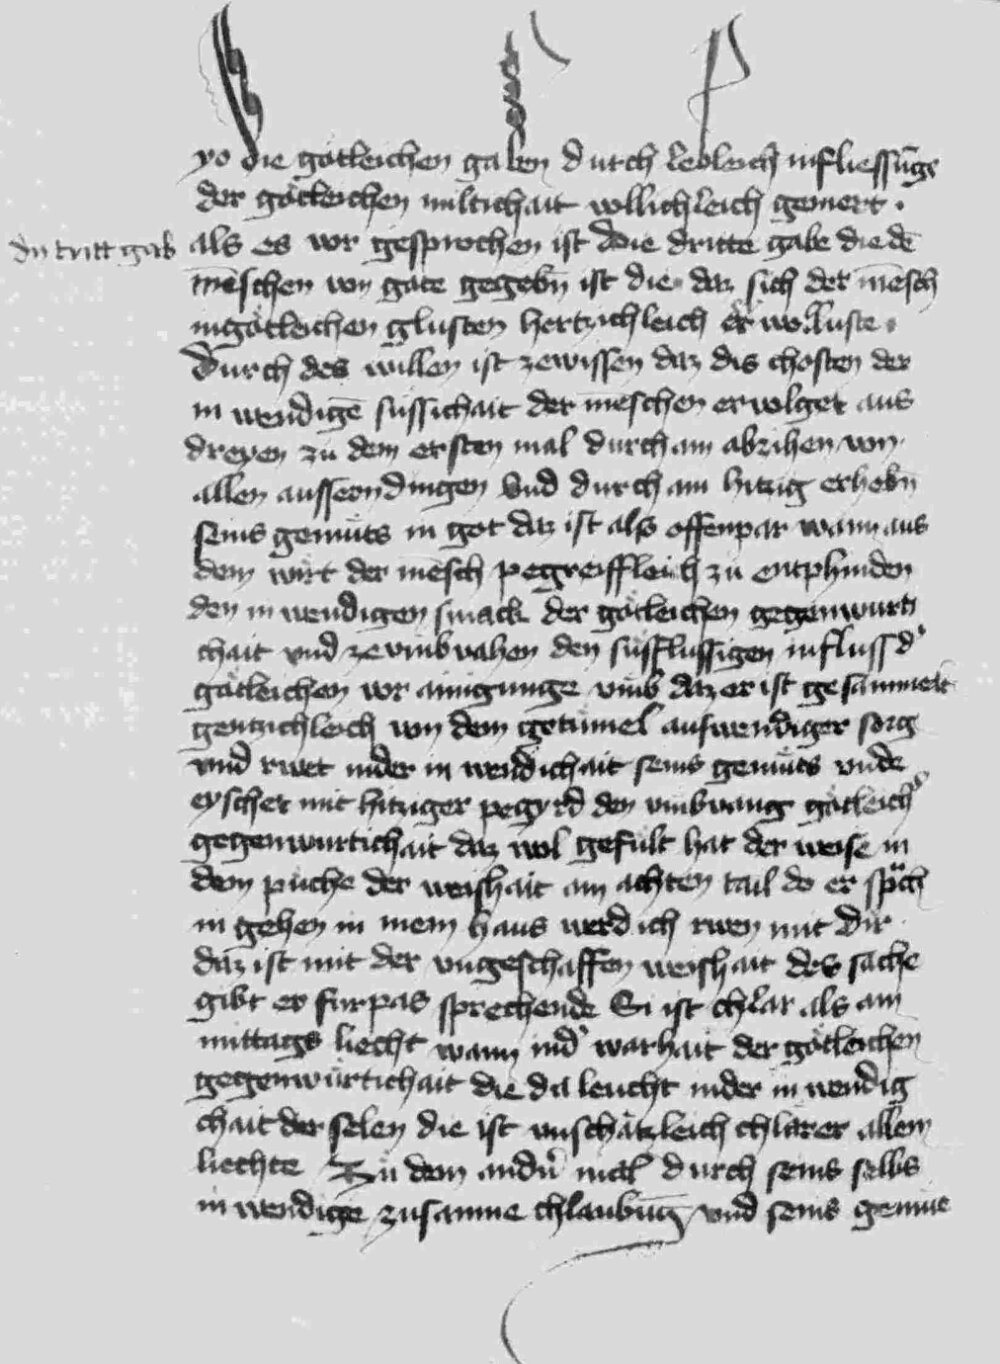 yo die götleichen gaben durch lebleich influessūge
der götleichen miltichait wllichleich gemert .
dy tritt gab
als es vor gesprochen ist Die dritte gabe die dē
mēschen von gote gegebn̄ ist die daz sich der mēsch
in götleichen glusten hertzichleich er wolluste .
Durch des willen ist zewissen daz dis chosten der
in wendigē süssichait der mēschen ervolget aus
dreyen zu dem ersten mal durch ain abzihen von
allen aussern dingen vnd durch ain hitzig erhebn̄
seins gemüts in got daz ist also offenpar wann aus
dem wirt der mēsch pegreiffleich zu entphinden
den in wendigen smack der götleichen gegenwurti
chait vnd ze vmbvahen den süsflussigen influss d'
götleichen vor ainigunge vmb daz er ist gesammelt
gentzichleich von dem getümel auswendiger sorg
vnd rwet in der in wendichait seins gemüts vnde
eyschet mit hitziger pegyrd den vmbvang götleich'
gegenwurtichait daz wol gefült hat der weise in
dem püche der weishait am achten tail do er sprach
in gehen in mein haus werd ich rwen mit Dir
daz ist mit der vngeschaffen weishait des sache
gibt er fürpas sprechende Si ist chlar als am
mittags liecht wann in d' warhait der götleichen
gegenwürtichait die da leucht in der in wendig
chait der selen die ist vnschätzleich chlärer allem
liechte Zu dem andn̄ mal durch seins selbs
in wendige zusamne chlaubūg vnd seins gemüe